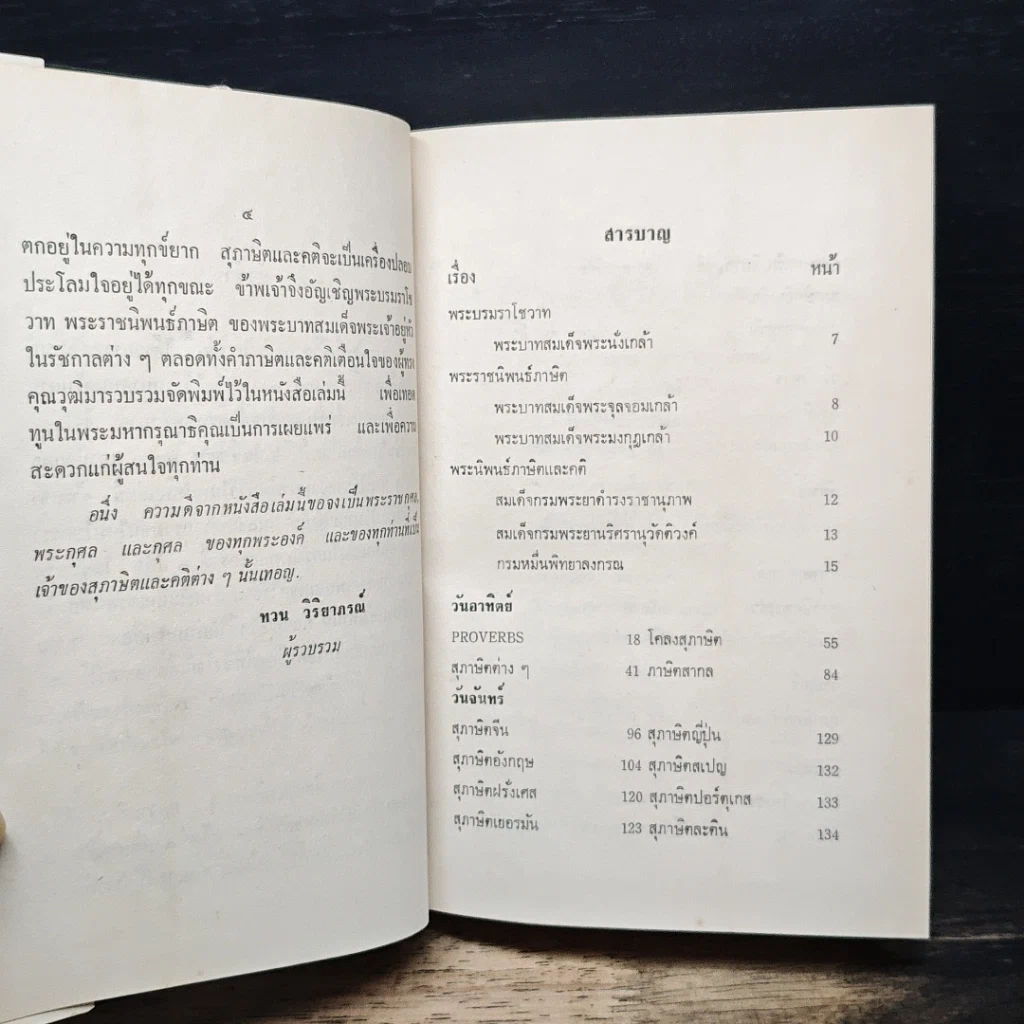 ๔
ตกอยู่ในความทุกข์ยาก สุภาษิตและคติจะเป็นเครื่องปลอบ
ประโลมใจอยู่ได้ทุกขณะ ข้าพเจ้าจึงอัญเชิญพระบรมราโช
วาท พระราชนิพนธ์ภาษิต ของพระบาทสมเด็จพระเจ้าอยู่หัว
ในรัชกาลต่าง ๆ ตลอดทั้งคำภาษิตและคติเตือนใจของผู้ทรง
คุณวุฒิมารวบรวมจัดพิมพ์ไว้ในหนังสือเล่มนี้ เพื่อเทอด
ทูนในพระมหากรุณาธิคุณเป็นการเผยแพร่ และเพื่อความ
สะดวกแก่ผู้สนใจทุกท่าน
อนึ่ง ความดีจากหนังสือเล่มนี้ขอจงเป็นพระราชกุศล
พระกุศล และกุศล ของทุกพระองค์ และของทุกท่านที่เป็น
เจ้าของสุภาษิตและคติต่าง ๆ นั้นเทอญ.
ทวน วิริยาภรณ์
ผู้รวบรวม
สารบาญ
เรื่อง หน้า
พระบรมราโชวาท
พระบาทสมเด็จพระนั่งเกล้า 7
พระราชนิพนธ์ภาษิต
พระบาทสมเด็จพระจุลจอมเกล้า 8
พระบาทสมเด็จพระมงกุฎเกล้า 10
พระนิพนธ์ภาษิตและคติ
สมเด็จกรมพระยาดำรงราชานุภาพ 12
สมเด็จกรมพระยานริศรานุวัดติวงศ์ 13
กรมหมื่นพิทยาลงกรณ 15
วันอาทิตย์
PROVERBS 18 โคลงสุภาษิต 55
สุภาษิตต่าง ๆ 41 ภาษิตสากล 84
วันจันทร์
สุภาษิตจีน 96 สุภาษิตญี่ปุ่น 129
สุภาษิตอังกฤษ 104 สุภาษิตสเปญ 132
สุภาษิตฝรั่งเศส 120 สุภาษิตปอร์ตุเกส 133
สุภาษิตเยอรมัน 123 สุภาษิตละติน 134